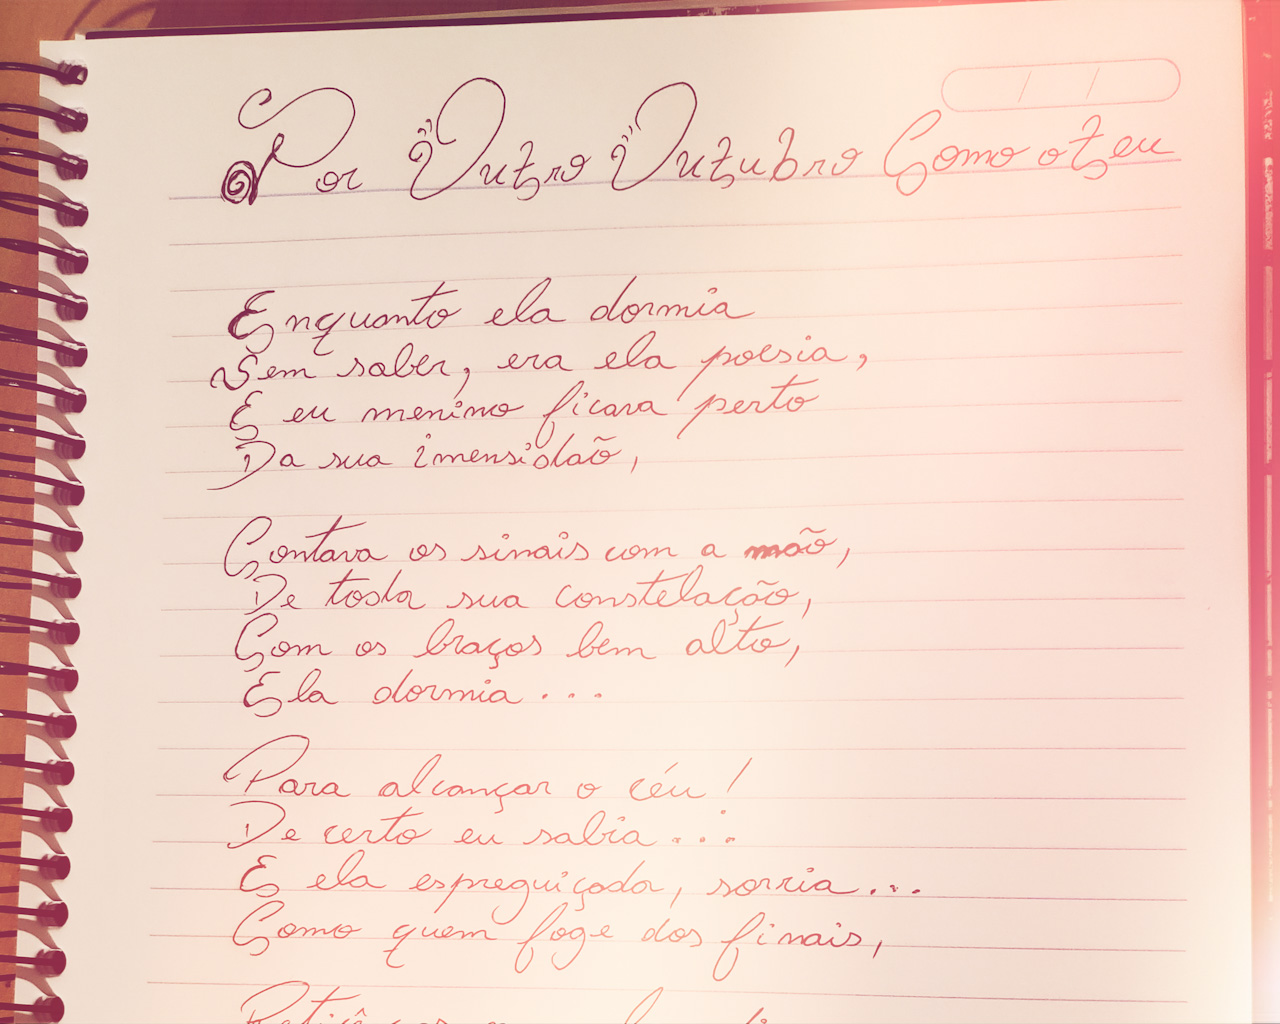 Por Outro Outubro Como o teu
Enquanto ela dormia
Sem saber, era ela poesia,
E eu menino ficava perto
Da sua imensidão,
Contava os sinais com a mão,
De toda sua constelação,
Com os braços bem alto,
Ela dormia...
Para alcançar o céu!
De certo eu sabia...
E ela espreguiçada, sorria...
Como quem foge dos finais,